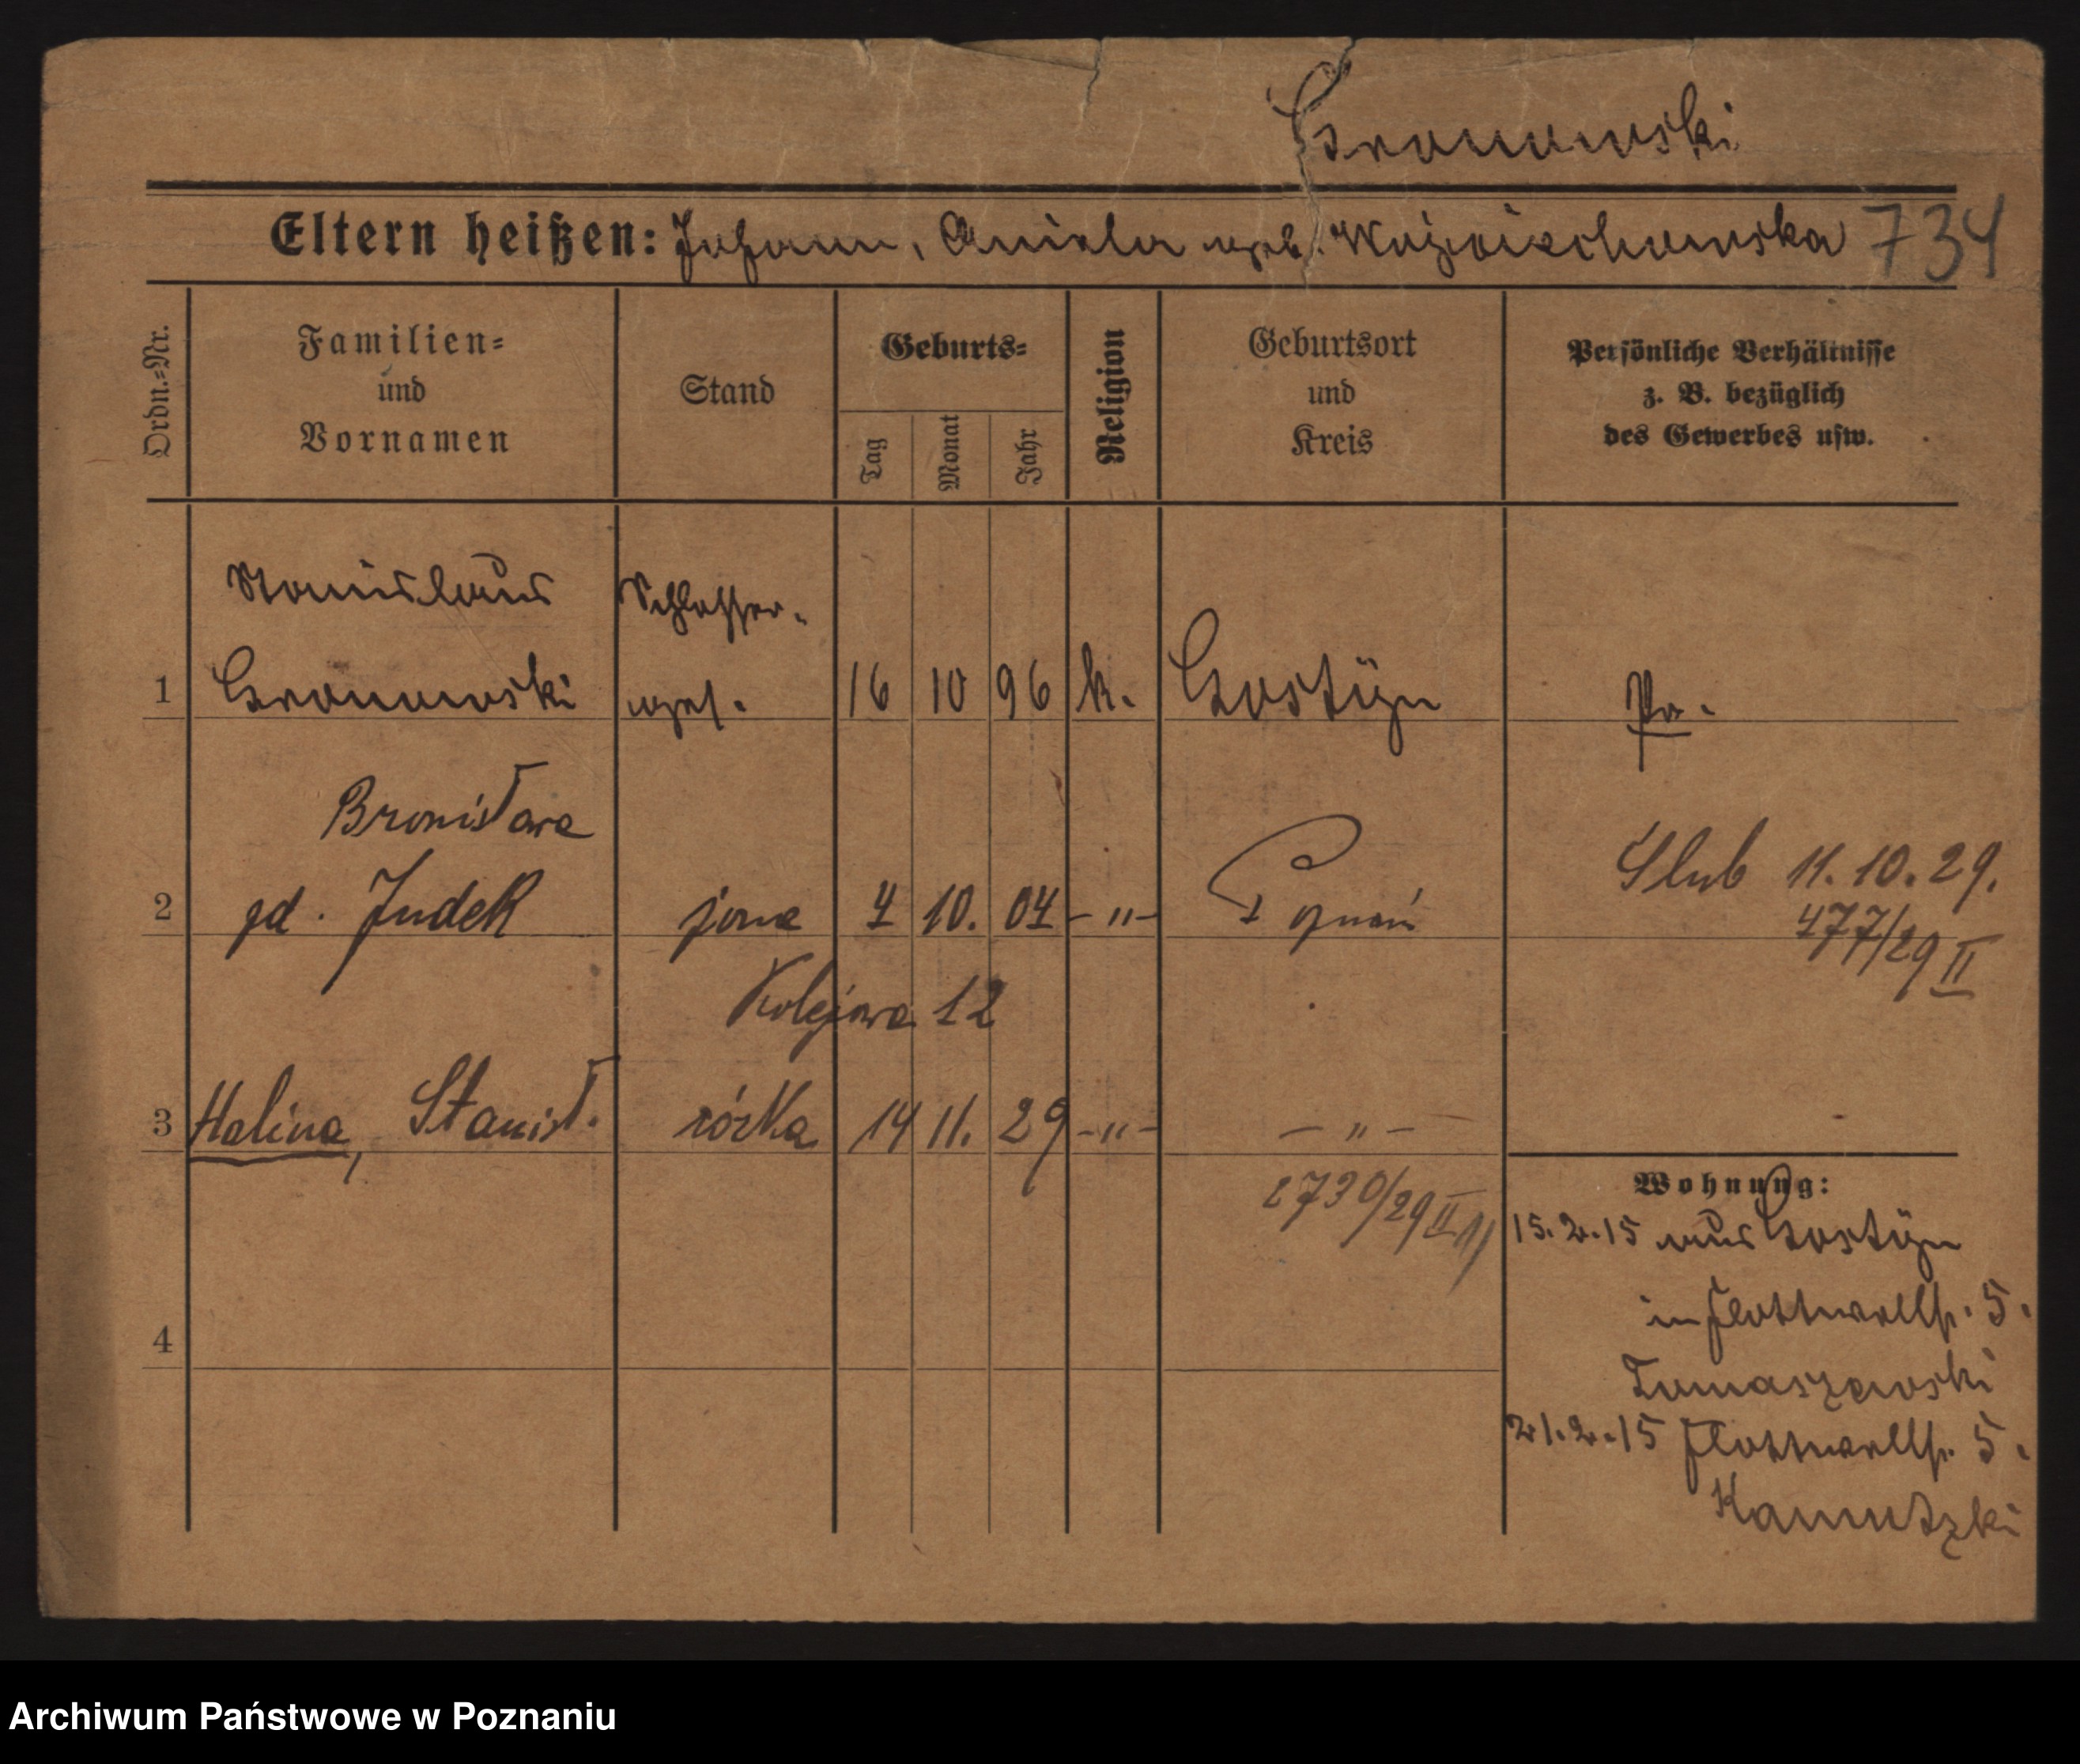 Gronowski
Eltern heißen: Johann, Aniela geb. Wojciechowska 734
Ordn.=Nr.
Familien=
und
Vornamen
Stand
Geburts=
Tag
Monat
Jahr
Religion
Geburtsort
und
Kreis
Persönliche Verhältnisse
z. B. bezüglich
des Gewerbes usw.
Stanislaus Schlosser-
1 Gronowski ges. 16 10 96 k. Gostÿn Pr.
Bronisława
2 zd. Judek żona 4 10. 04 -"- Poznań Ślub 11.10.29.
477/29 II
Kolejowa 12
3 Halina, Stanisł. córka 14 11. 29 -"- -"-
2730/29 II
Wohnung:
15.2.15 aus Gostÿn
in Flottwellst. 5.
Tomaszewski
21.2.15 Flottwellst. 5.
4
Archiwum Państwowe w Poznaniu